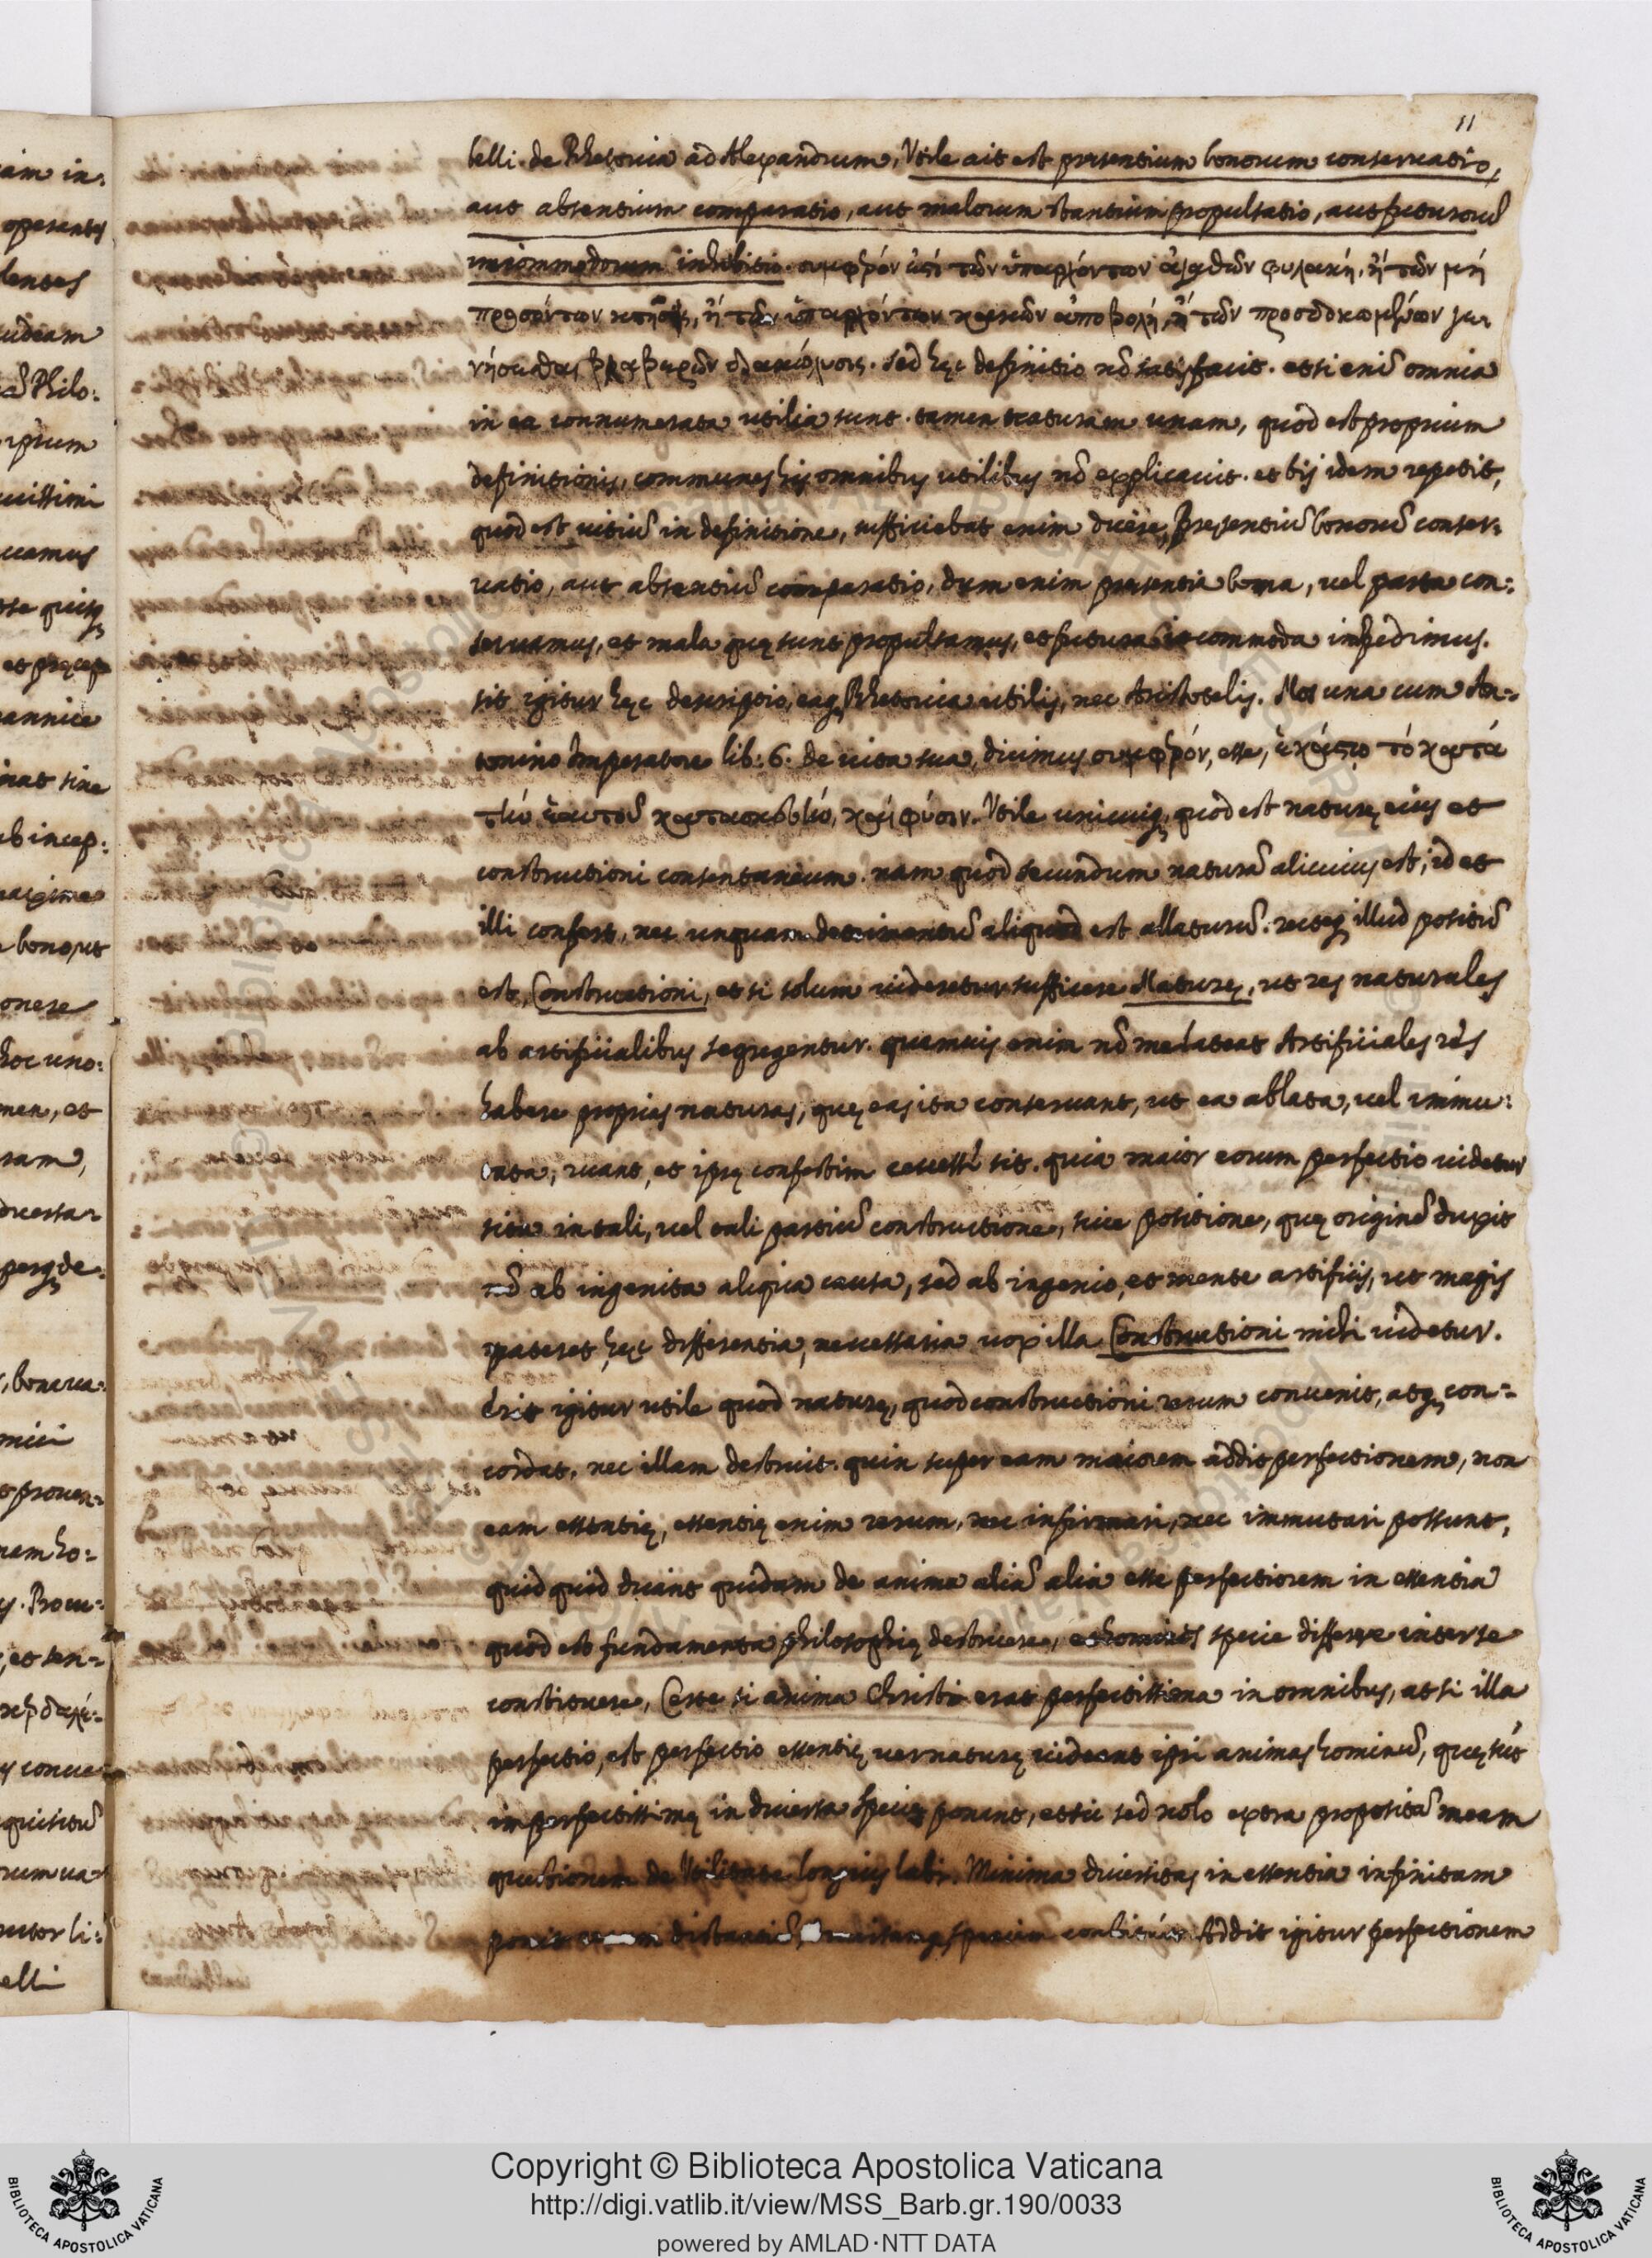 11
belli. de Rhetorica ad Alexandrum, Utile ait est presentium bonorum conservatio,
aut absentium comparatio, aut malorum stantium propultatio, aut futurorũ
incommodorum inhibitio. συμφέρόν ἐστί τῶν ὑπαρχόντων ἀγαθῶν φυλακή, ἤ τῶν μή
προσόντων κτῆσις, ἤ τῶν ὑπαρχόντων κακῶν ἀποβολή, ἤ τῶν προσδοκωμένων γε-
νήσεσθαι βλαβερῶν διακώλυσις. sed hęc definitio nõ satisfacit. etsi enĩ omnia
in ea connumerata utilia sunt. tamen naturam unam, quod est proprium
definitionis, communes his omnibus utilibus nõ explicavit. et bis idem repetit,
quod est vitiũ in definitione, sufficiebat enim dicere, Pręsentiũ bonorũ conser-
vatio, aut absentiũ comparatio, dum enim presentia bona, vel parta con:
servamus, et mala quę sunt propulsamus, et futura incommoda impedimus.
sit igitur hęc descriptio, eaq; Rhetorica utilis, nec Aristotelis. Nos una cum An-
tonino Imperatore lib: 6. de vita sua, dicimus συμφέρόν, esse, ἑκάστῳ τό κατά
τήν ἑαυτοῦ κατασκευήν, καί φύσιν. Utile unicuiq; quod est naturę eius et
constructioni consentaneum. nam quod secundum naturã alicuius est, id et
illi confert, nec unquam detrimentũ aliquod est allaturũ. recteq; illud positũ
est, Constructioni, et si solum videretur sufficere Naturę, ut res naturales
ab artificialibus segregentur. quamvis enim nõ me lateat Artificiales res
habere proprias naturas, quę eas ita conservant, ut ea ablata, vel immu:
tata, ruant, et ipsę confestim sit. quia maior eorum perfectio videtur
sita in tali, vel tali partiũ constructione, sive positione, quę originẽ duxit
nõ ab ingenita aliqua causa, sed ab ingenio, et mente artificis, ut magis
pateret hęc differentia, necessaria vox illa Constructioni mihi videtur.
Erit igitur utile quod naturę, quod constructioni rerum convenit, atq; con-
cordat, nec illam destruit. quin super eam maiorem addit perfectionem, non
eam essentię, essentię enim rerum, nec infirmari, nec immutari possunt,
quidquid dicant quidam de anima aliã alia esse perfectiorem in essentia
quod est fundamenta philosophię destruere, et homines specie differre inter se
constituere, Certe si anima Christi erat perfectissima in omnibus, at si illa
perfectio, est perfectio essentię, vel naturę videant ipsi animas hominũ, quę sũt
imperfectissimę in diversa specie ponant, sed nolo extra propositã meam
questionem de Utilitate longius labi. Minima diversitas in essentia infinitam
ponit rerum distantiã, specium constituit. Addit igitur perfectionem
Copyright © Biblioteca Apostolica Vaticana
http://digi.vatlib.it/view/MSS_Barb.gr.190/0033
powered by AMLAD·NTT DATA
BIBLIOTECA APOSTOLICA VATICANA
BIBLIOTECA APOSTOLICA VATICANA